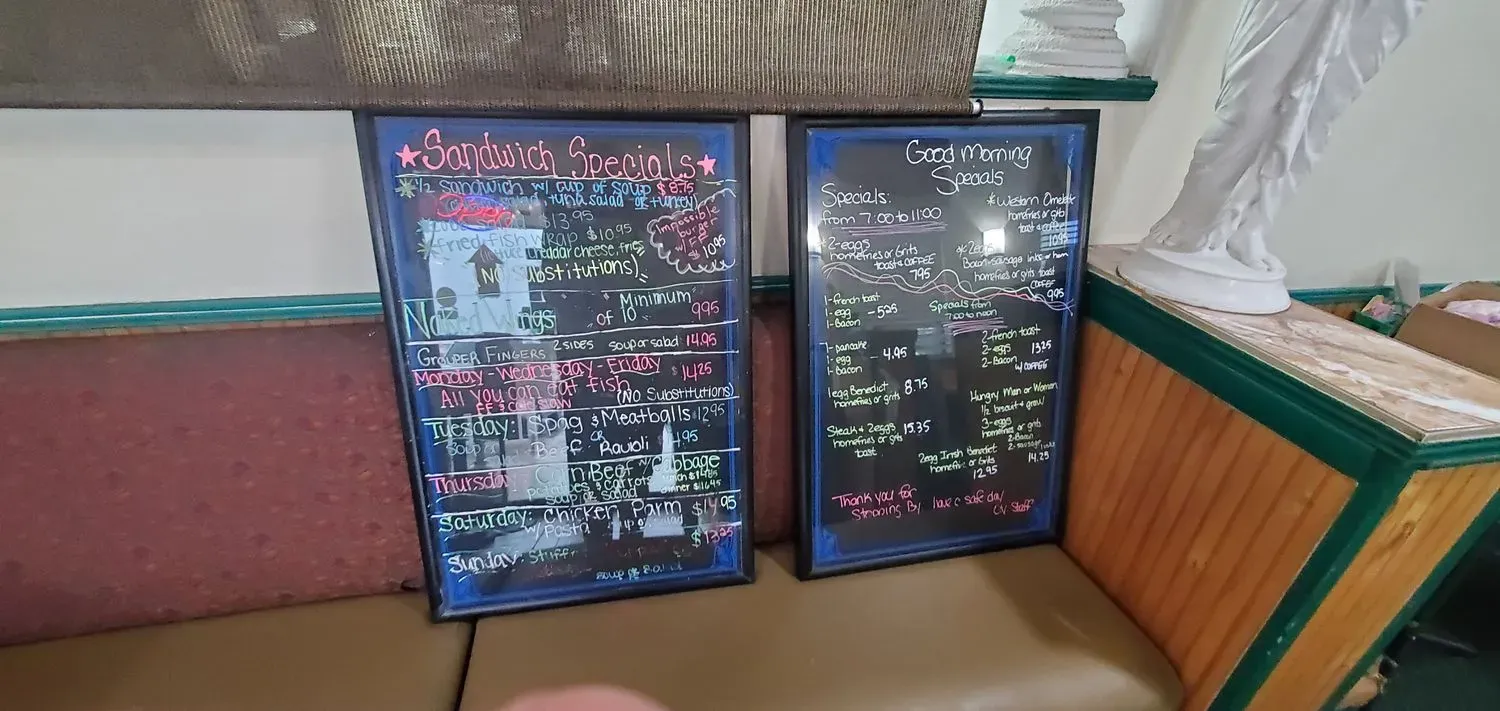 Sandwich Specials
1/2 sandwich w/ cup of soup $8.75
salad, tuna salad or turkey)
Open
$13.95
fried fish wrap $10.95
cheddar cheese, fries
NO Substitutions)
Impossible
burger
w/ FF
$1095
Naked Wings " of Minimum 10 " 995
GROUPER FINGERS 2 SIDES soup or salad 14.95
Monday - Wednesday - Friday $14.25
All you can eat fish
FF & cole slaw (NO Substitutions)
Tuesday: Spag & Meatballs $1295
soup or
OR
Beef Ravioli
Thursday: Corn Beef w/ Cabbage
potatoes & carrots lunch
soup or salad dinner $16.45
Saturday: Chicken Parm $14.95
w/ Pasta
Sunday:
soup or salad
Good Morning
Specials
Specials:
from 7:00 to 11:00
*2-eggs
homefries or Grits
toast & COFFEE
795
*Western Omelete
homefries or grits
toast & coffee
1095
Bacon-sausage links or ham
homefries or grits toast
COFFEE
995
1-french toast
1-egg - 525
1-Bacon
Specials from
7:00 to noon
1-pancake
1-egg - 4.95
1-Bacon
2-french toast
2-eggs 13.25
2-Bacon
w/ COFFEE
1 egg Benedict 8.75
homefries or grits
Hungry Man or Woman
1/2 biscuit & gravy
3-eggs
homefries or grits
2-Bacon
2-sausage links
14.25
Steak & 2eggs 15.35
homefries or grits
toast
2egg Irish Benedict
homefries or Grits
12.95
Thank you for
Stropping By have a safe day
LV Staff